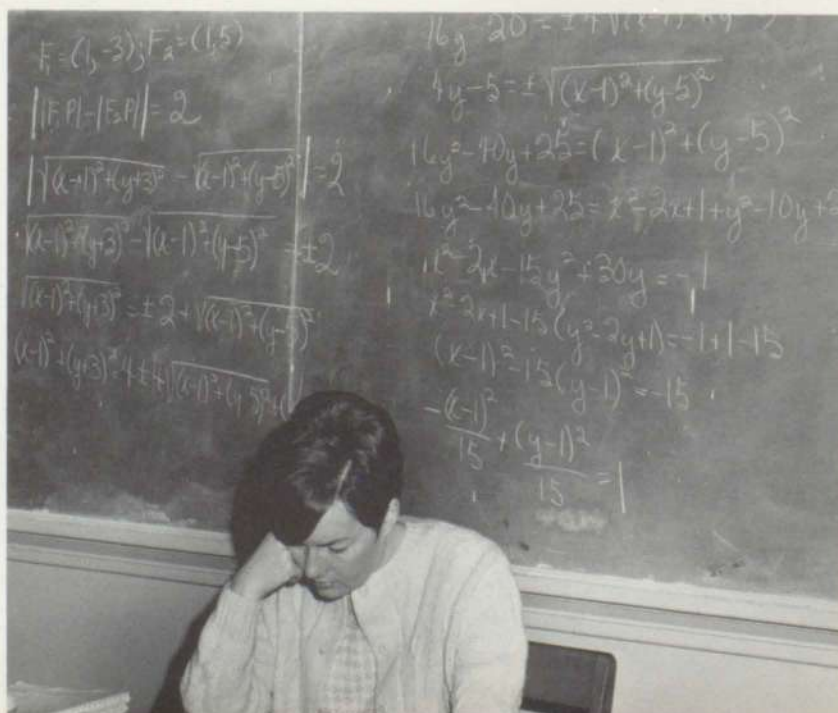 F₁=(1,-3); F₂=(1,5)
||F₁P|-|F₂P||=2
|√(x-1)²+(y+3)² - √(x-1)²+(y-5)²|=2
√(x-1)²+(y+3)² - √(x-1)²+(y-5)² = ±2
√(x-1)²+(y+3)² = ±2+√(x-1)²+(y-5)²
(x-1)²+(y+3)²=4±4√(x-1)²+(y-5)²+(
16y-20=±4√(x-1)²
4y-5=±√(x-1)²+(y-5)²
16y²-40y+25=(x-1)²+(y-5)²
16y²-40y+25=x²-2x+1+y²-10y+
x²-2x-15y²+30y=-1
x²-2x+1-15(y²-2y+1)=-1+1-15
(x-1)²-15(y-1)²=-15
-(x-1)²/15+(y-1)²/15=1